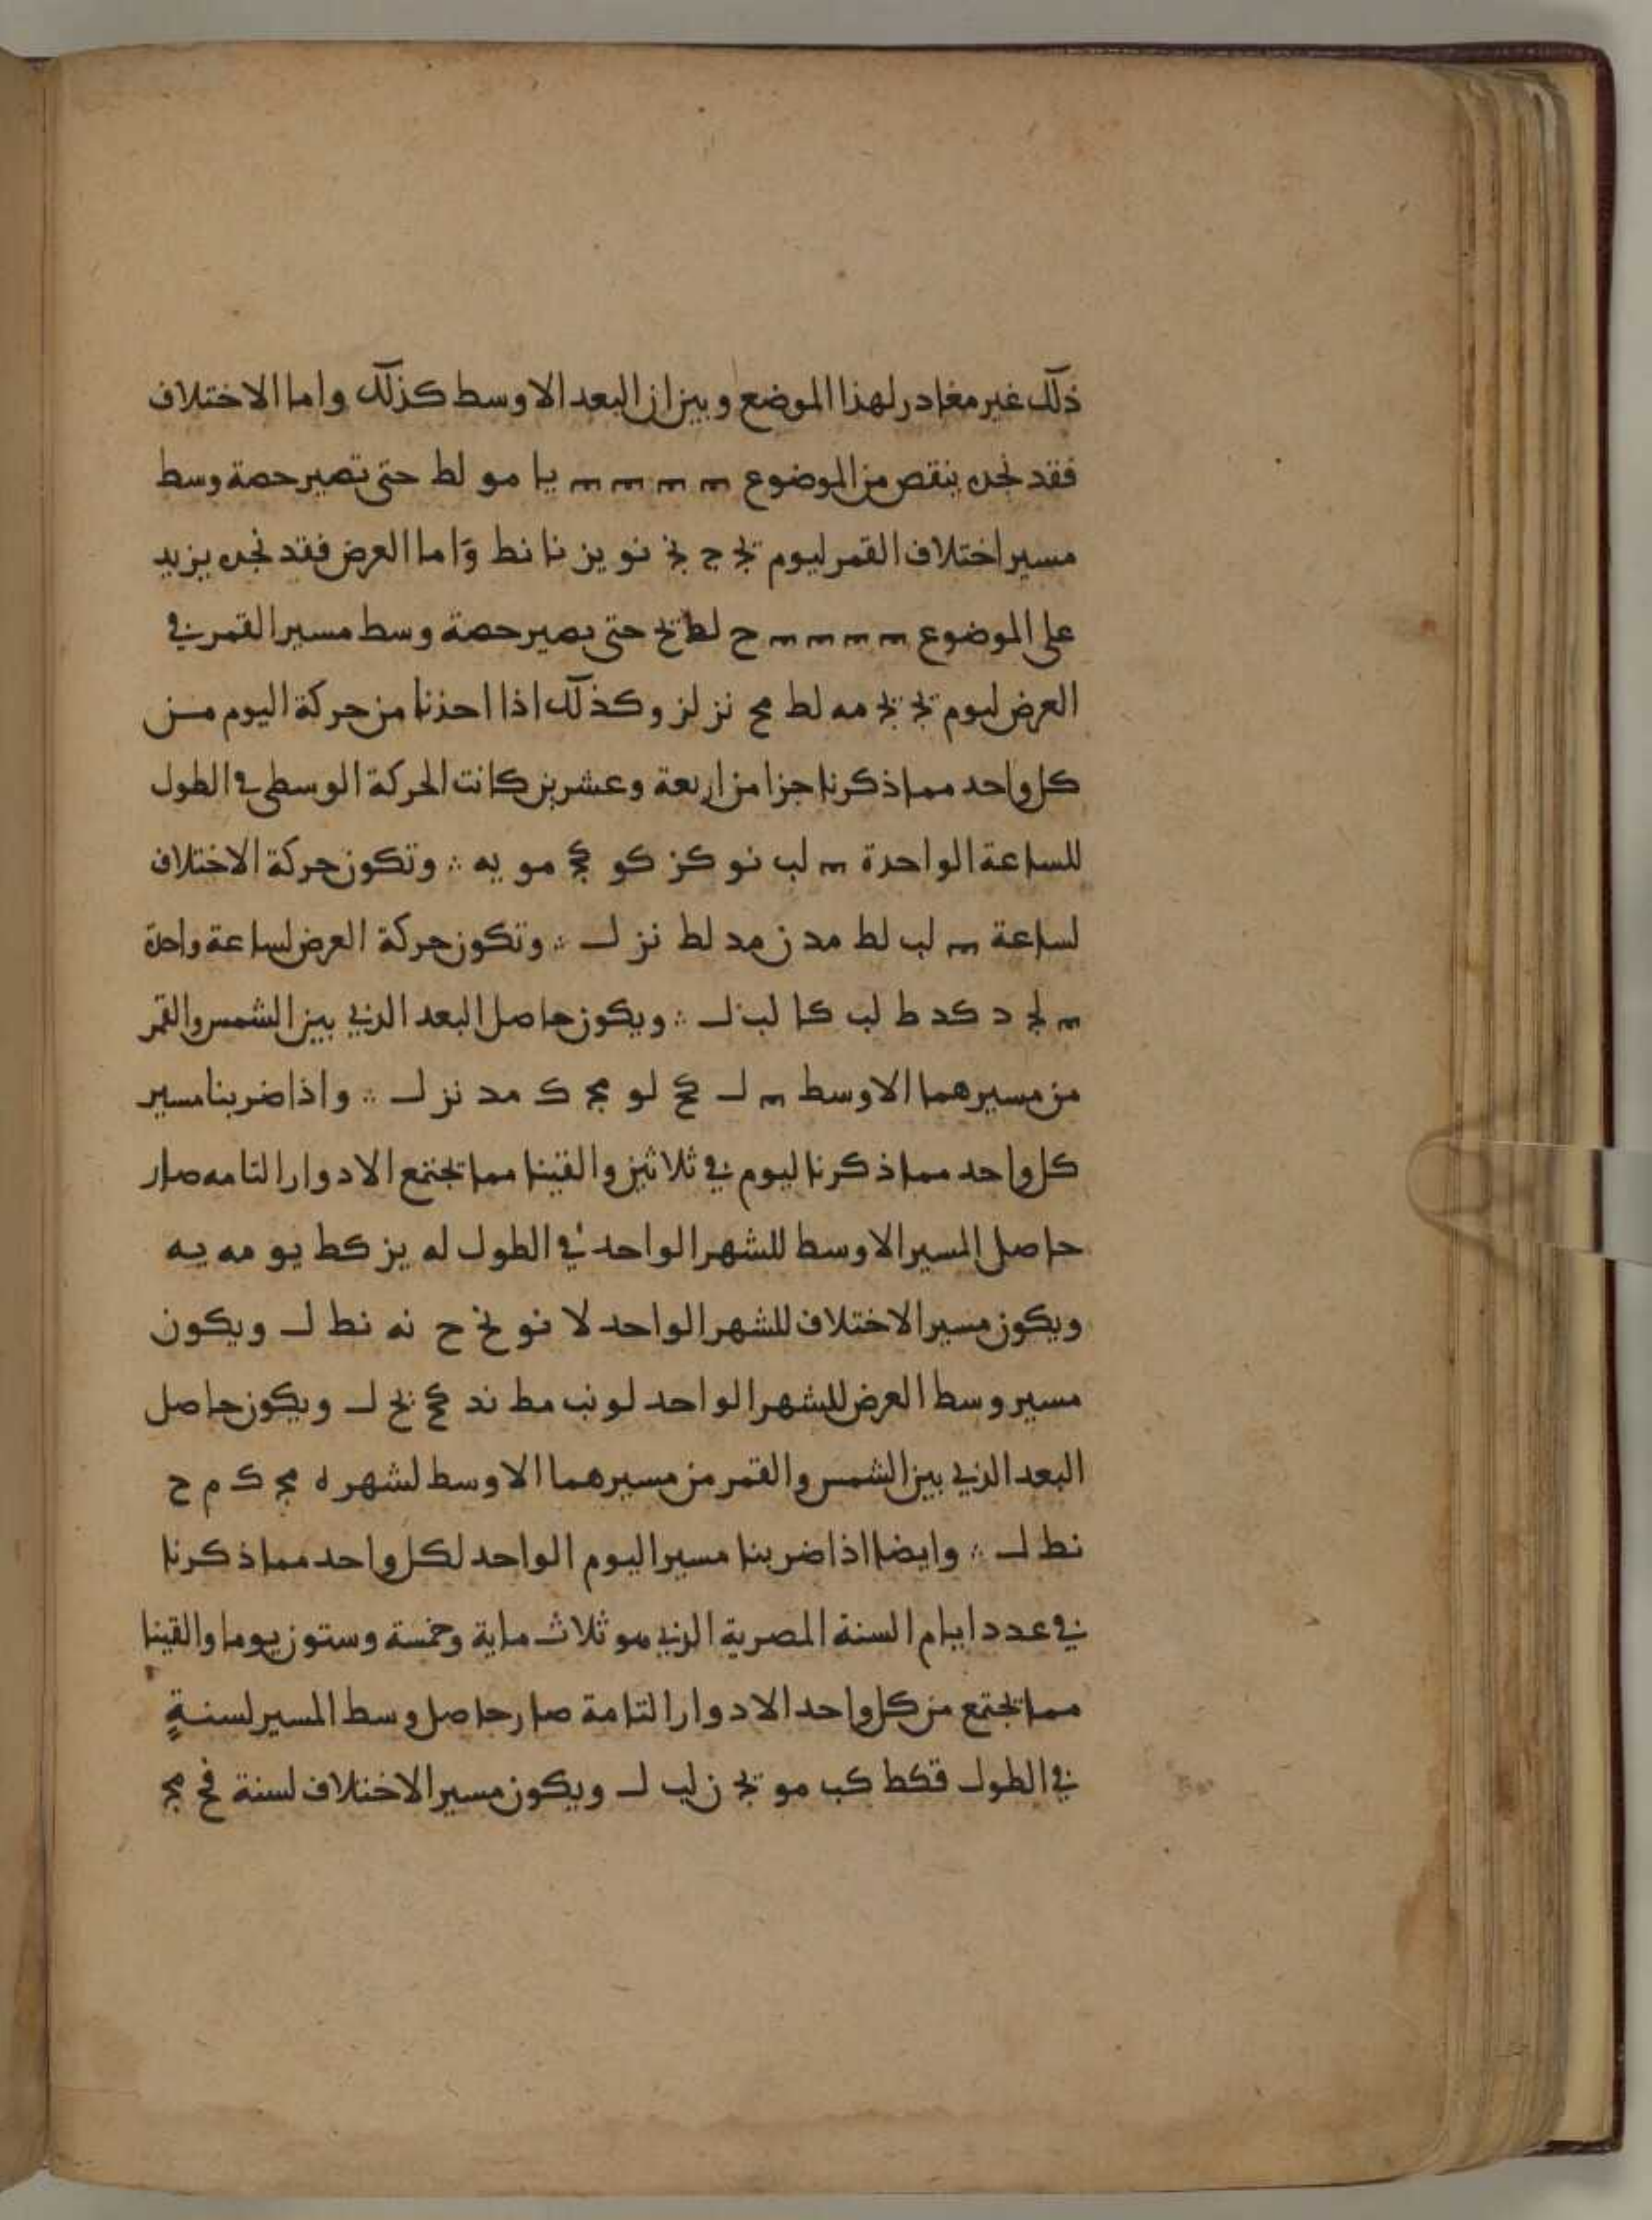 ذلك غير مغادر لهذا الموضع وبين ان البعد الاوسط كذلك واما الاختلاف
فقد نجده ينقص من الموضوع ـه ـه ـه ـه يا مو لط حتى تصير حصة وسط
مسير اختلاف القمر ليوم يج ج نج نو يز نا نط واما العرض فقد نجده يزيد
على الموضوع ـه ـه ـه ـه ح لط يح حتى يصير حصة وسط مسير القمر في
العرض ليوم يج يج مه لط مح نز لز وكذلك اذا اخذنا من حركة اليوم من
كل واحد مما ذكرنا جزا من اربعة وعشرين كانت الحركة الوسطى في الطول
للساعة الواحدة ـه لب نو كز كو كج مو يه ؞ وتكون حركة الاختلاف
لساعة ـه لب لط مد ن مد لط نز ل ؞ وتكون حركة العرض لساعة واحدة
ـه لج د كد ط لب كا لب ل ؞ ويكون حاصل البعد الذي بين الشمس والقمر
من مسيرهما الاوسط ـه ل كح لو مج ك مد نز ل ؞ واذا ضربنا مسير
كل واحد مما ذكرنا ليوم في ثلاثين والقينا مما تجتمع الادوار التامه صار
حاصل المسير الاوسط للشهر الواحد في الطول له يز كط يو مه يه
ويكون مسير الاختلاف للشهر الواحد لا نو نح ح نه نط ل ويكون
مسير وسط العرض للشهر الواحد لو نب مط ند كح يح ل ويكون حاصل
البعد الذي بين الشمس والقمر من مسيرهما الاوسط لشهر ه مج ك م ح
نط ل ؞ وايضا اذا ضربنا مسير اليوم الواحد لكل واحد مما ذكرنا
في عدد ايام السنة المصرية الذي هو ثلاث ماية وخمسة وستون يوما والقينا
مما تجتمع من كل واحد الادوار التامة صار حاصل وسط المسير لسنةٍ
في الطول قكط كب مو يج ن لب ل ويكون مسير الاختلاف لسنة فح مج